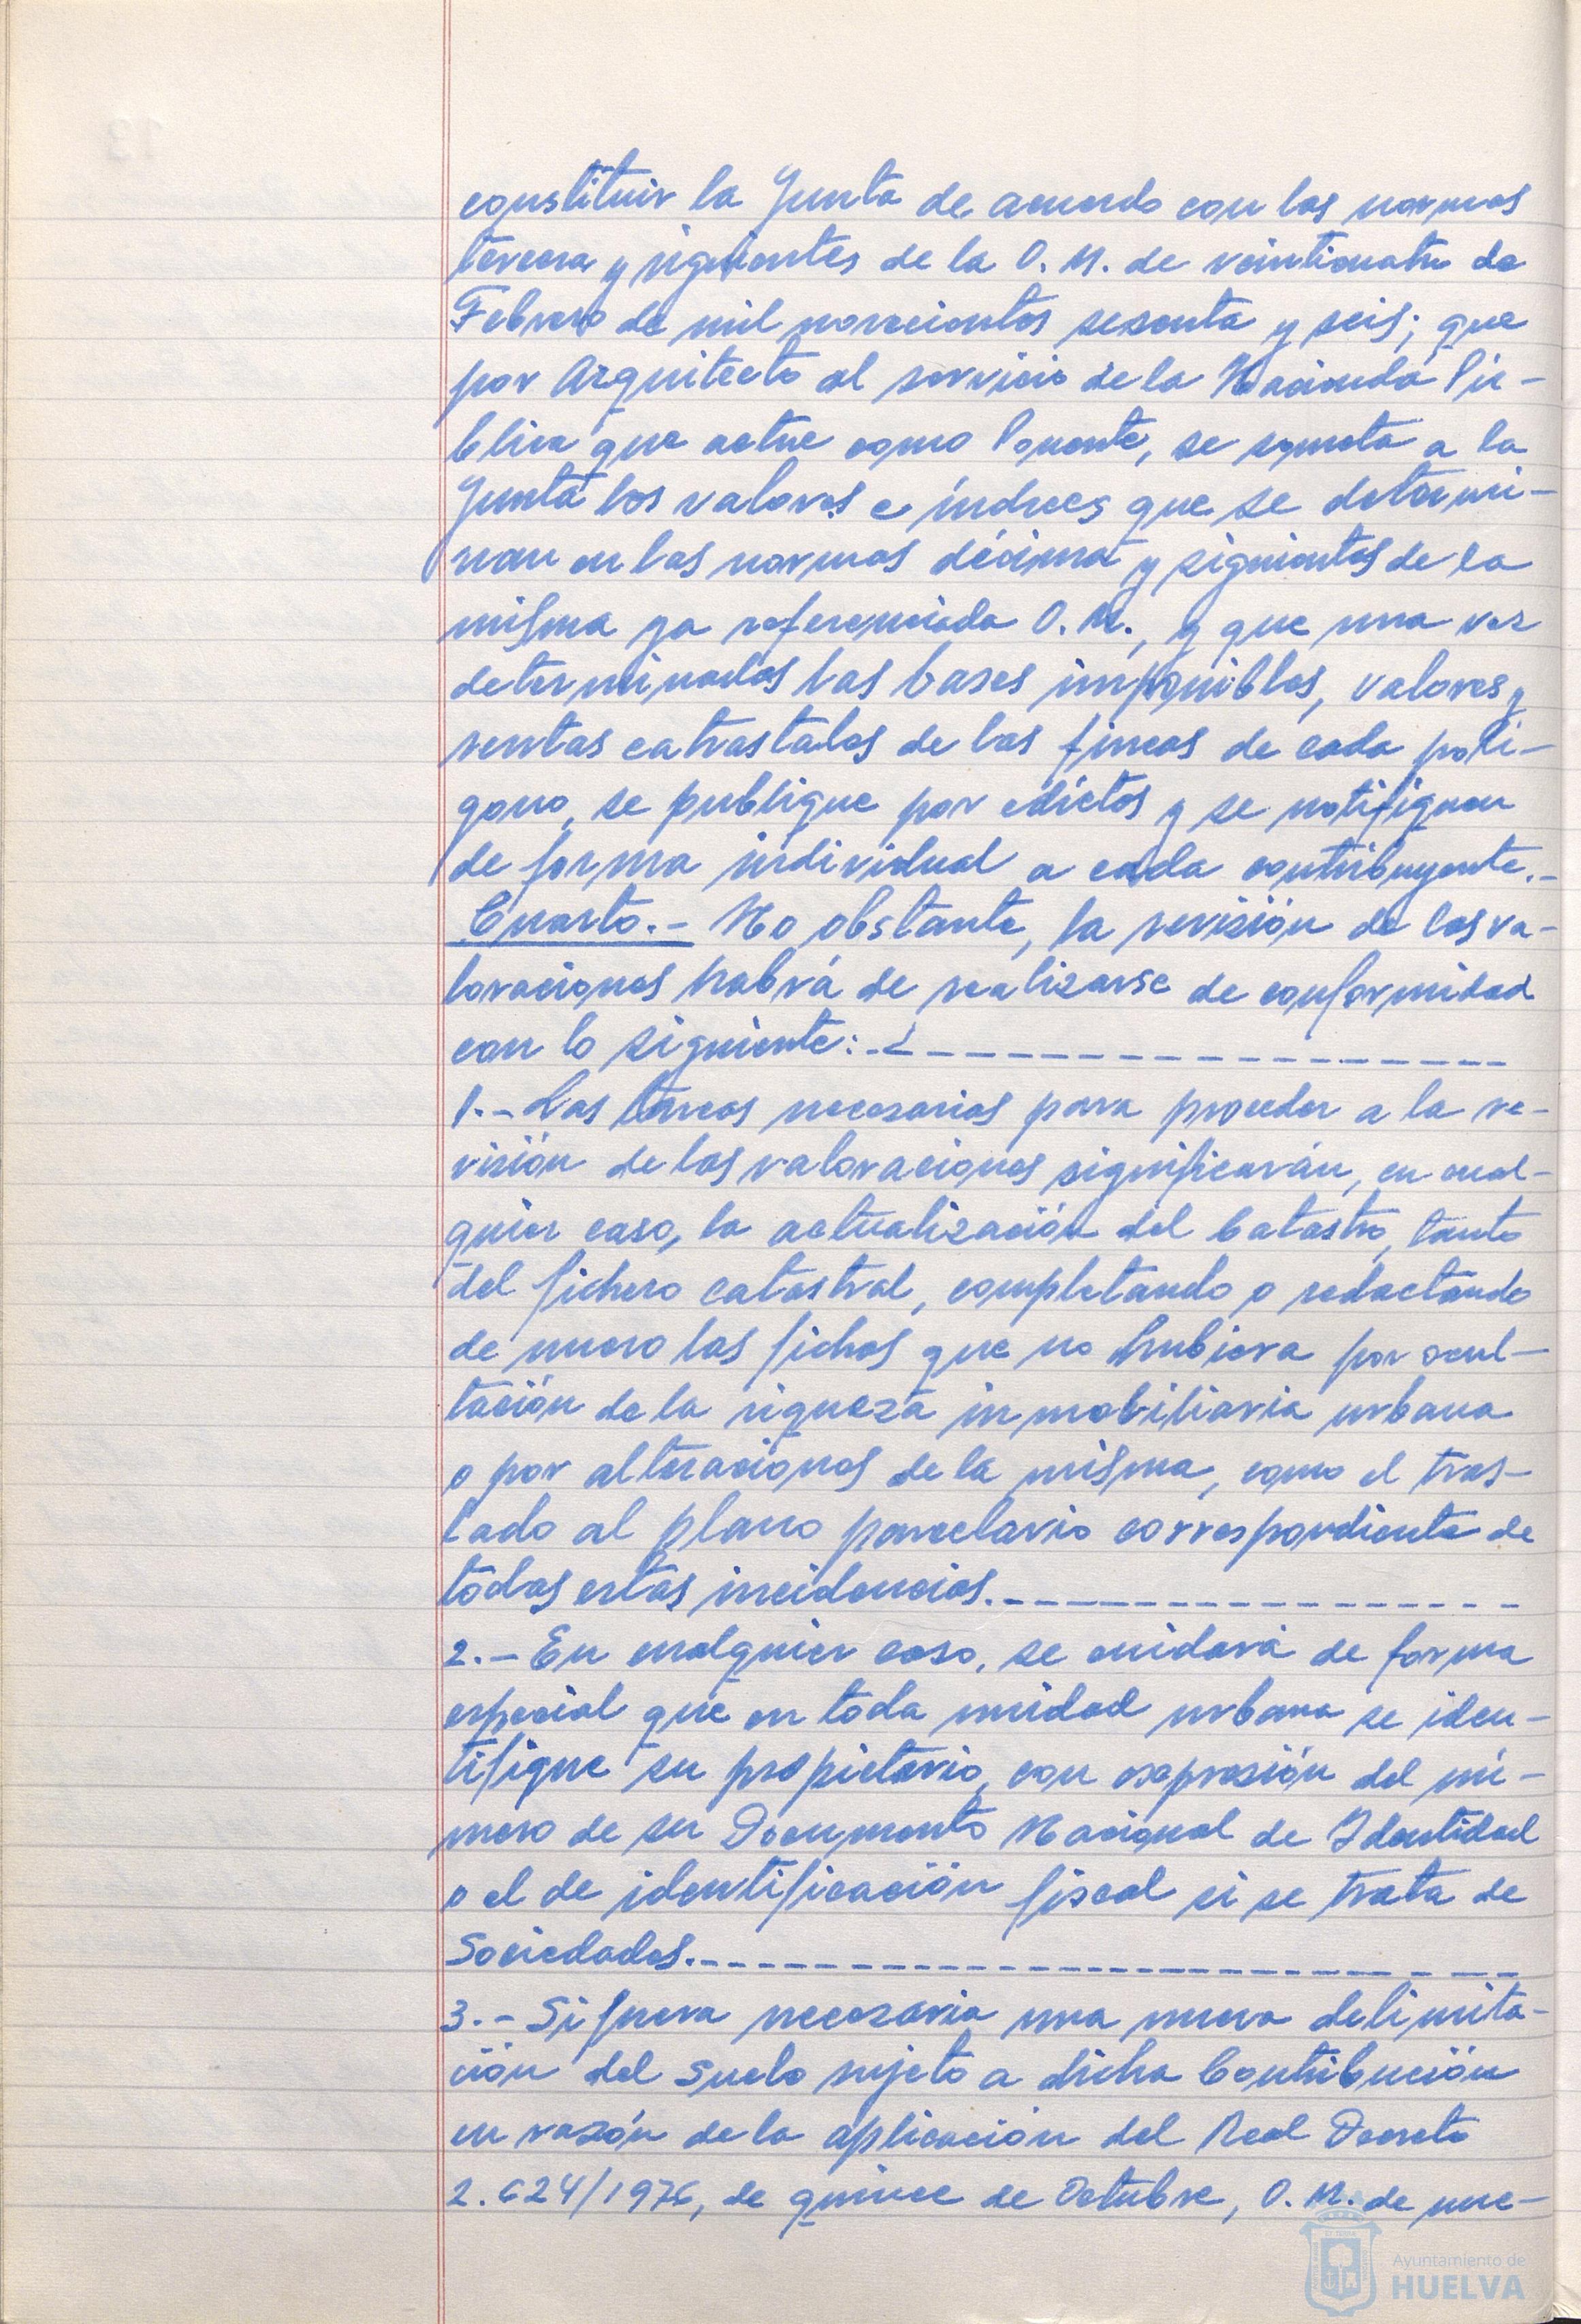 constituir la Junta de acuerdo con las normas
tercera y siguientes de la O. M. de veinticuatro de
Febrero de mil novecientos sesenta y seis; que
por Arquitecto al servicio de la Hacienda Pú-
blica que actue como Ponente, se someta a la
Junta los valores e índices que se determi-
nan en las normas décima y siguientes de la
misma ya referenciada O. M., y que una vez
determinadas las bases imponibles, valores y
rentas catastales de las fincas de cada polí-
gono, se publique por edictos y se notifiquen
de forma individual a cada contribuyente.-
Cuarto.- No obstante, la revisión de las va-
loraciones habrá de realizarse de conformidad
con lo siguiente:
1.- Las tareas necesarias para proceder a la re-
visión de las valoraciones significarán, en cual-
quier caso, la actualización del Catastro, tanto
del fichero catastral, completando o redactando
de nuevo las fichas que no hubiera por ocul-
tación de la riqueza inmobiliaria urbana
o por alteraciones de la misma, como el tras-
lado al plano parcelario correspondiente de
todas estas incidencias.
2.- En cualquier caso, se cuidará de forma
especial que en toda unidad urbana se iden-
tifique su propietario, con expresión del nú-
mero de su Documento Nacional de Identidad
o el de identificación fiscal si se trata de
Sociedades.
3.- Si fuera necesaria una nueva delimita-
ción del suelo sujeto a dicha Contribución
en razón de la aplicación del Real Decreto
2.624/1976, de quince de Octubre, O. M. de nue-
Ayuntamiento de
HUELVA